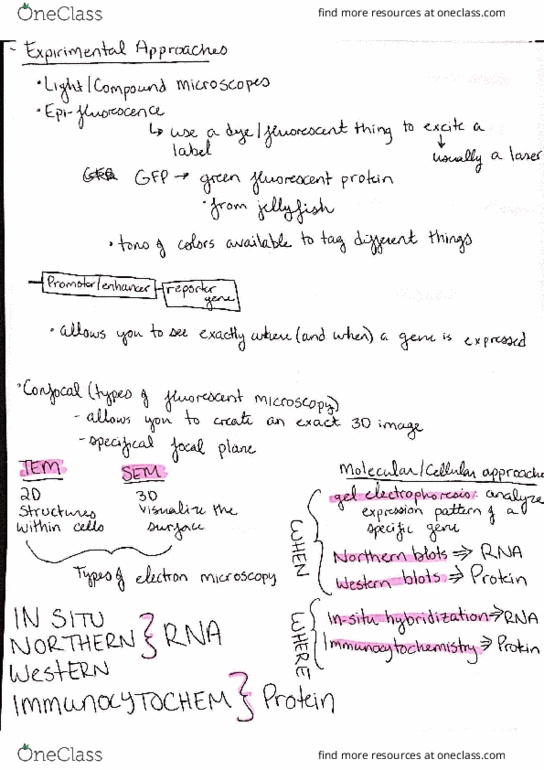 OneClass
find more resources at oneclass.com
- Expirimental Approaches
• Light/Compound microscopes
• Epi-fluorescence
↳ use a dye/fluorescent thing to excite a
label
usually a laser
GFP → green fluorescent protein
• from jellyfish
• tons of colors available to tag different things
Promotor/enhancer
reporter
gene
• allows you to see exactly when (and when) a gene is expressed
• Confocal (types of fluorescent microscopy)
- allows you to create an exact 3D image
- specifical focal plane
TEM
2D
structures
within cells
SEM
3D
visualize the
surface
Types of electron microscopy
Molecular/Cellular approache
WHEN
gel electrophoresis: analyze
expression pattern of a
specific gene
Northern blots ⇒ RNA
Western blots ⇒ Protein
WHERE
In-situ hybridization ⇒ RNA
Immunocytochemistry ⇒ Protein
IN SITU
NORTHERN } RNA
WESTERN
IMMUNOCYTOCHEM } Protein
OneClass
find more resources at oneclass.com